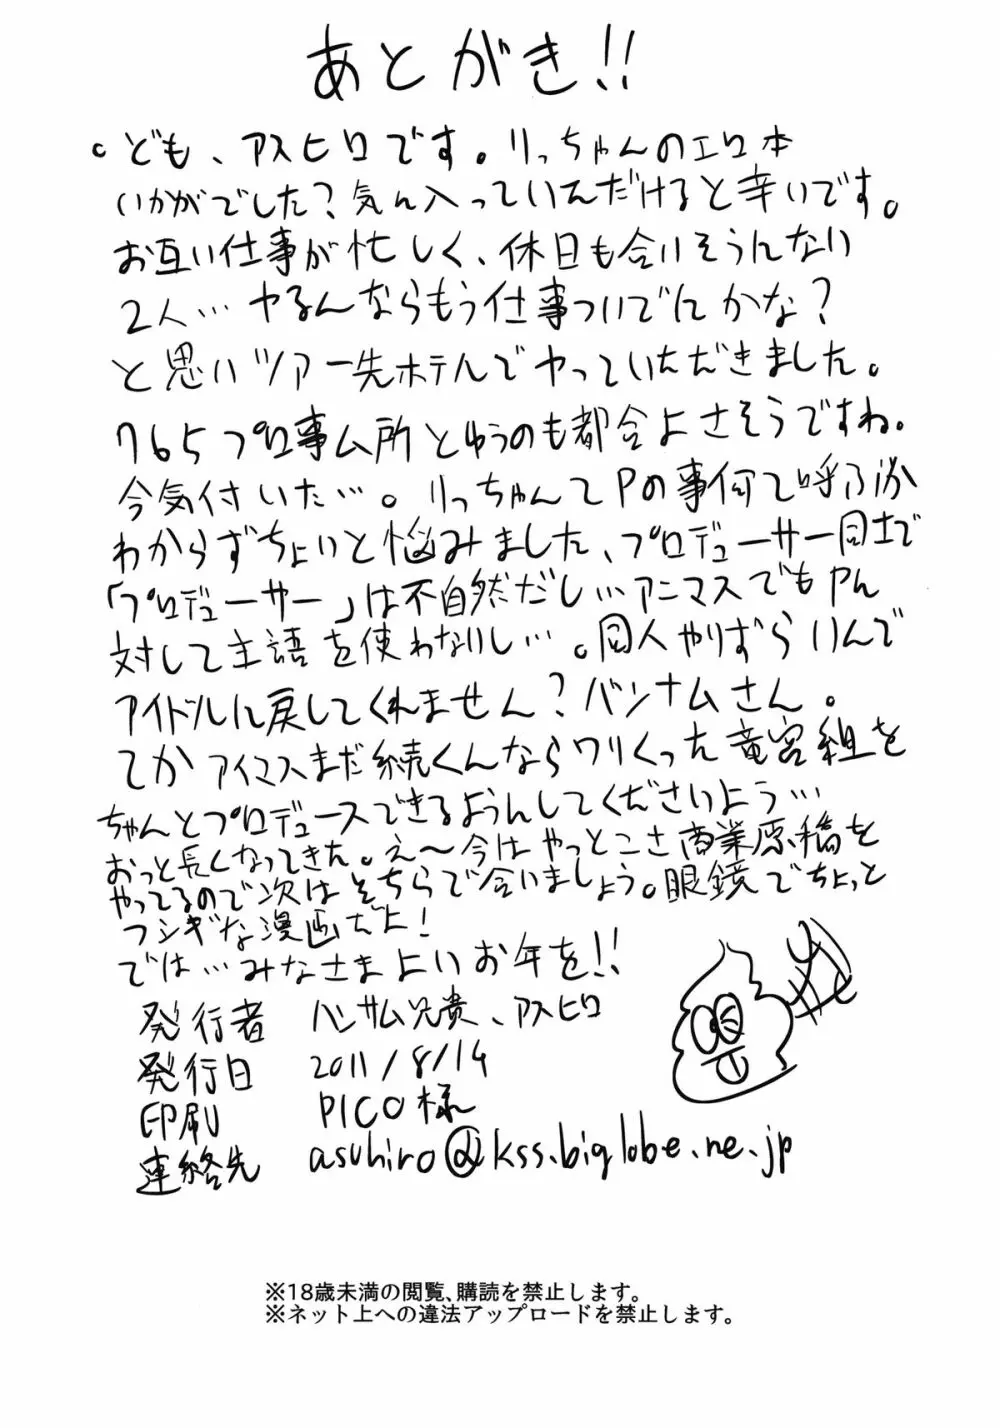 あとがき!!
。ども、アスヒロです。りっちゃんのエロ本
いかがでした？気に入っていただけると幸いです。
お互い仕事が忙しく、休日も合いそうにない
2人…ヤるんならもう仕事ついでにかな？
と思いツアー先ホテルでヤっていただきました。
765プロ事ム所とゆうのも都合よさそうですね。
今気付いた…。りっちゃんてPの事何て呼ぶか
わからずちょいと悩みました、プロデューサー同士で
「プロデューサー」は不自然だし…アニマスでもPに
対して主語を使わないし…。同人やりずらいんで
アイドルに戻してくれません？バンナムさん。
てかアイマスまだ続くんならワリくった竜宮組を
ちゃんとプロデュースできるようにしてくださいよう…
おっと長くなってきた。え～今はやっとこさ商業原稿を
やってるので次はそちらで合いましょう。眼鏡でちょっと
フシギな漫画だよ!
では…みなさまよいお年を!!
発行者 ハンサム兄貴、アスヒロ
発行日 2011/8/14
印刷 PICO様
連絡先 asuhiro@kss.biglobe.ne.jp
※18歳未満の閲覧、購読を禁止します。
※ネット上への違法アップロードを禁止します。